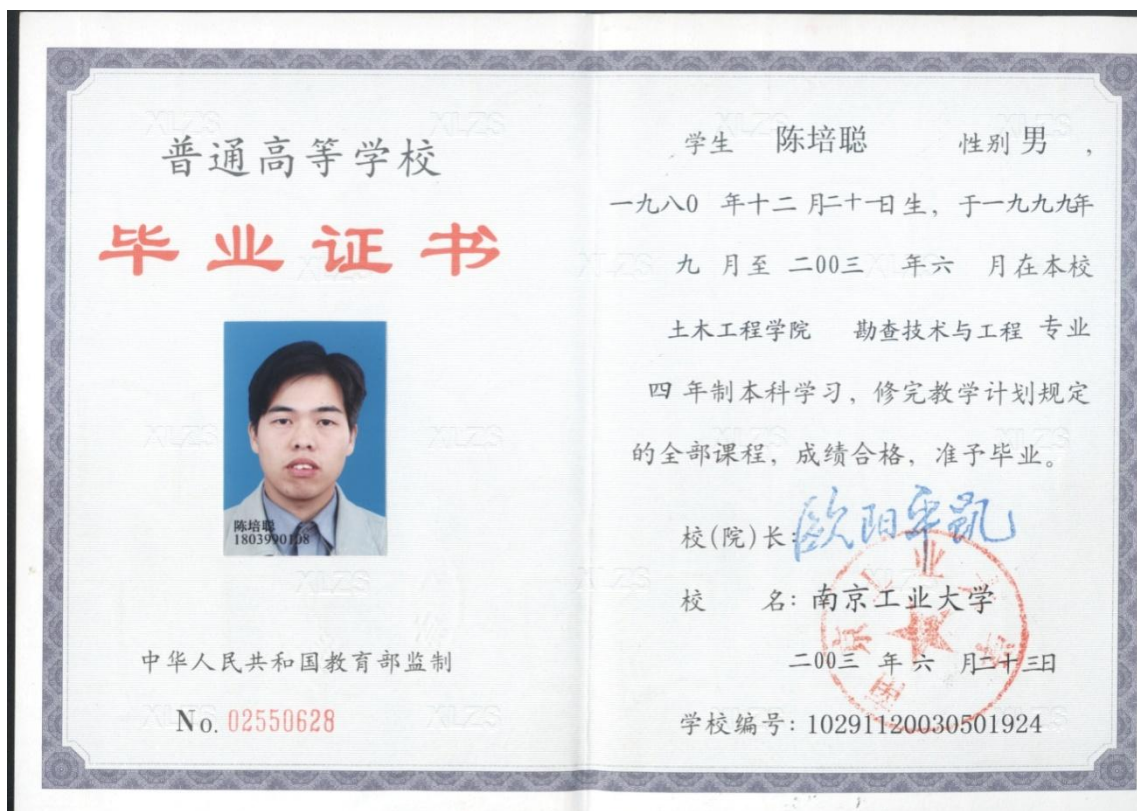 普通高等学校
毕业证书
陈培聪
1803990108
中华人民共和国教育部监制
No. 02550628
学生 陈培聪 性别 男 ，
一九八0 年十二 月二十一日生，于一九九九年
九 月至 二00三 年六 月在本校
土木工程学院 勘查技术与工程 专业
四 年制本科学习，修完教学计划规定
的全部课程，成绩合格，准予毕业。
校(院)长：欧阳平凯
校 名：南京工业大学
二00三 年 六 月二十三日
学校编号：10291120030501924
XLZS